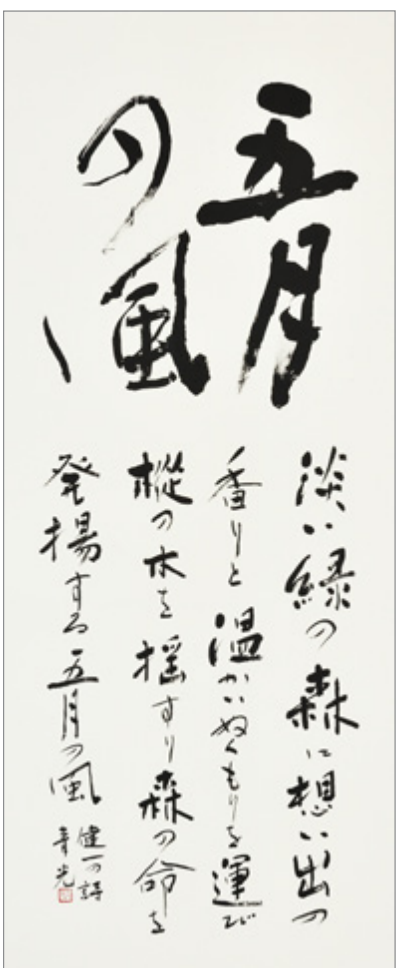 五月
の風
淡い緑の森に想い出の
香りと温かいぬくもりを運び
樅の木を揺すり森の命を
発揚する五月の風
健一の詩